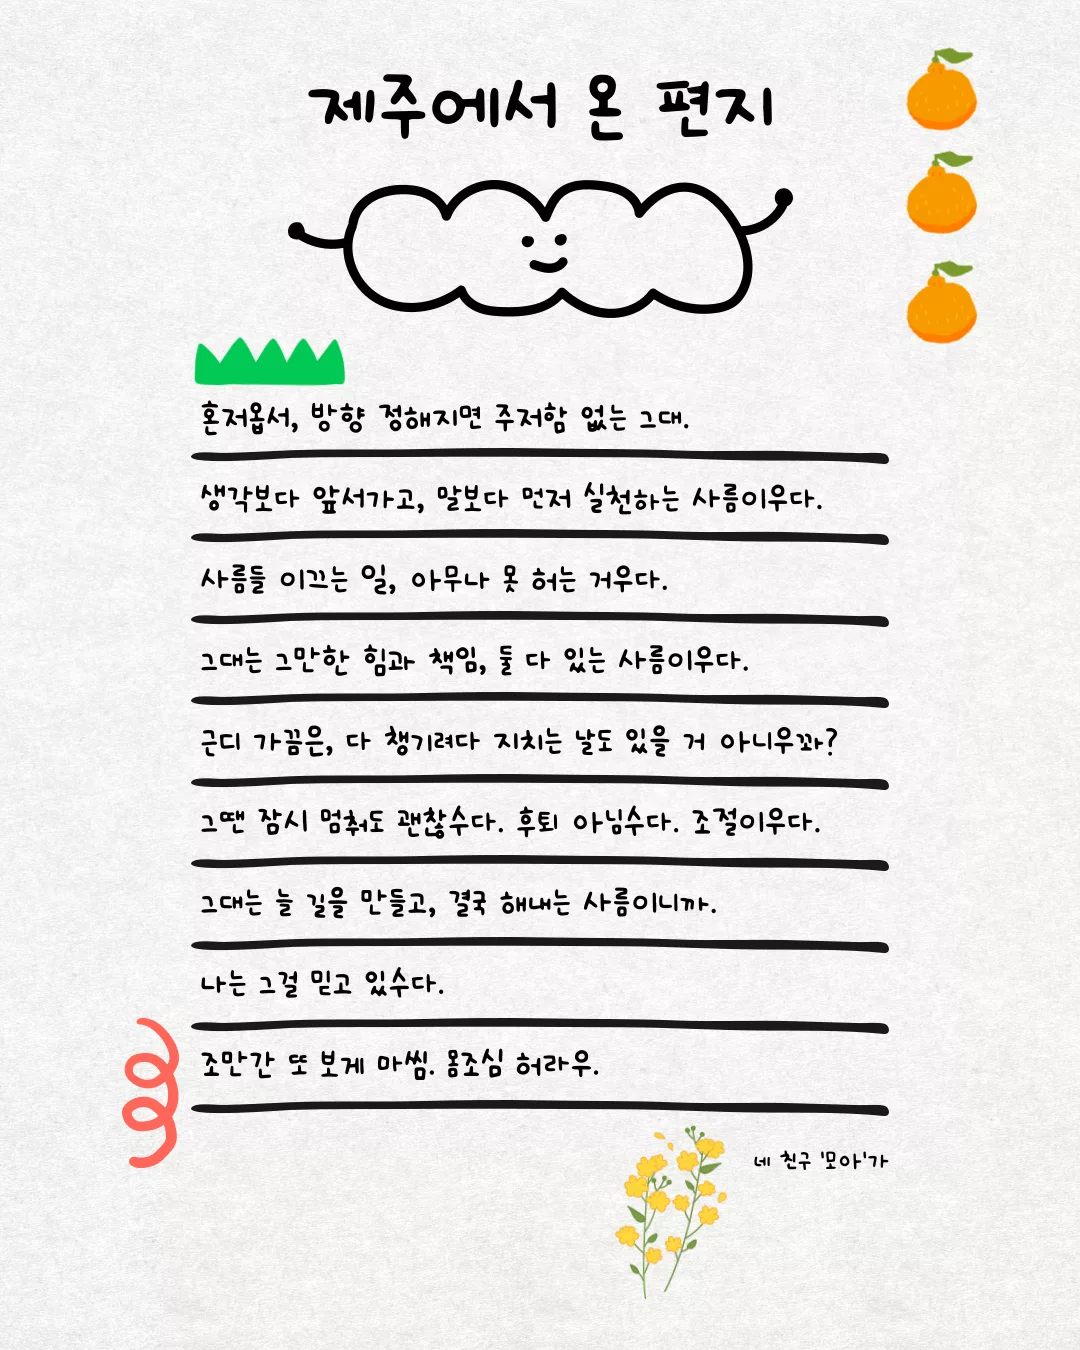 제주에서 온 편지
혼저옵서, 방향 정해지면 주저함 없는 그대.
생각보다 앞서가고, 말보다 먼저 실천하는 사름이우다.
사름들 이끄는 일, 아무나 못 허는 거우다.
그대는 그만한 힘과 책임, 둘 다 있는 사름이우다.
근디 가끔은, 다 챙기려다 지치는 날도 있을 거 아니우꽈?
그땐 잠시 멈춰도 괜찮수다. 후퇴 아님수다. 조절이우다.
그대는 늘 길을 만들고, 결국 해내는 사름이니까.
나는 그걸 믿고 있수다.
조만간 또 보게 마씸. 몸조심 허라우.
네 친구 '모아'가